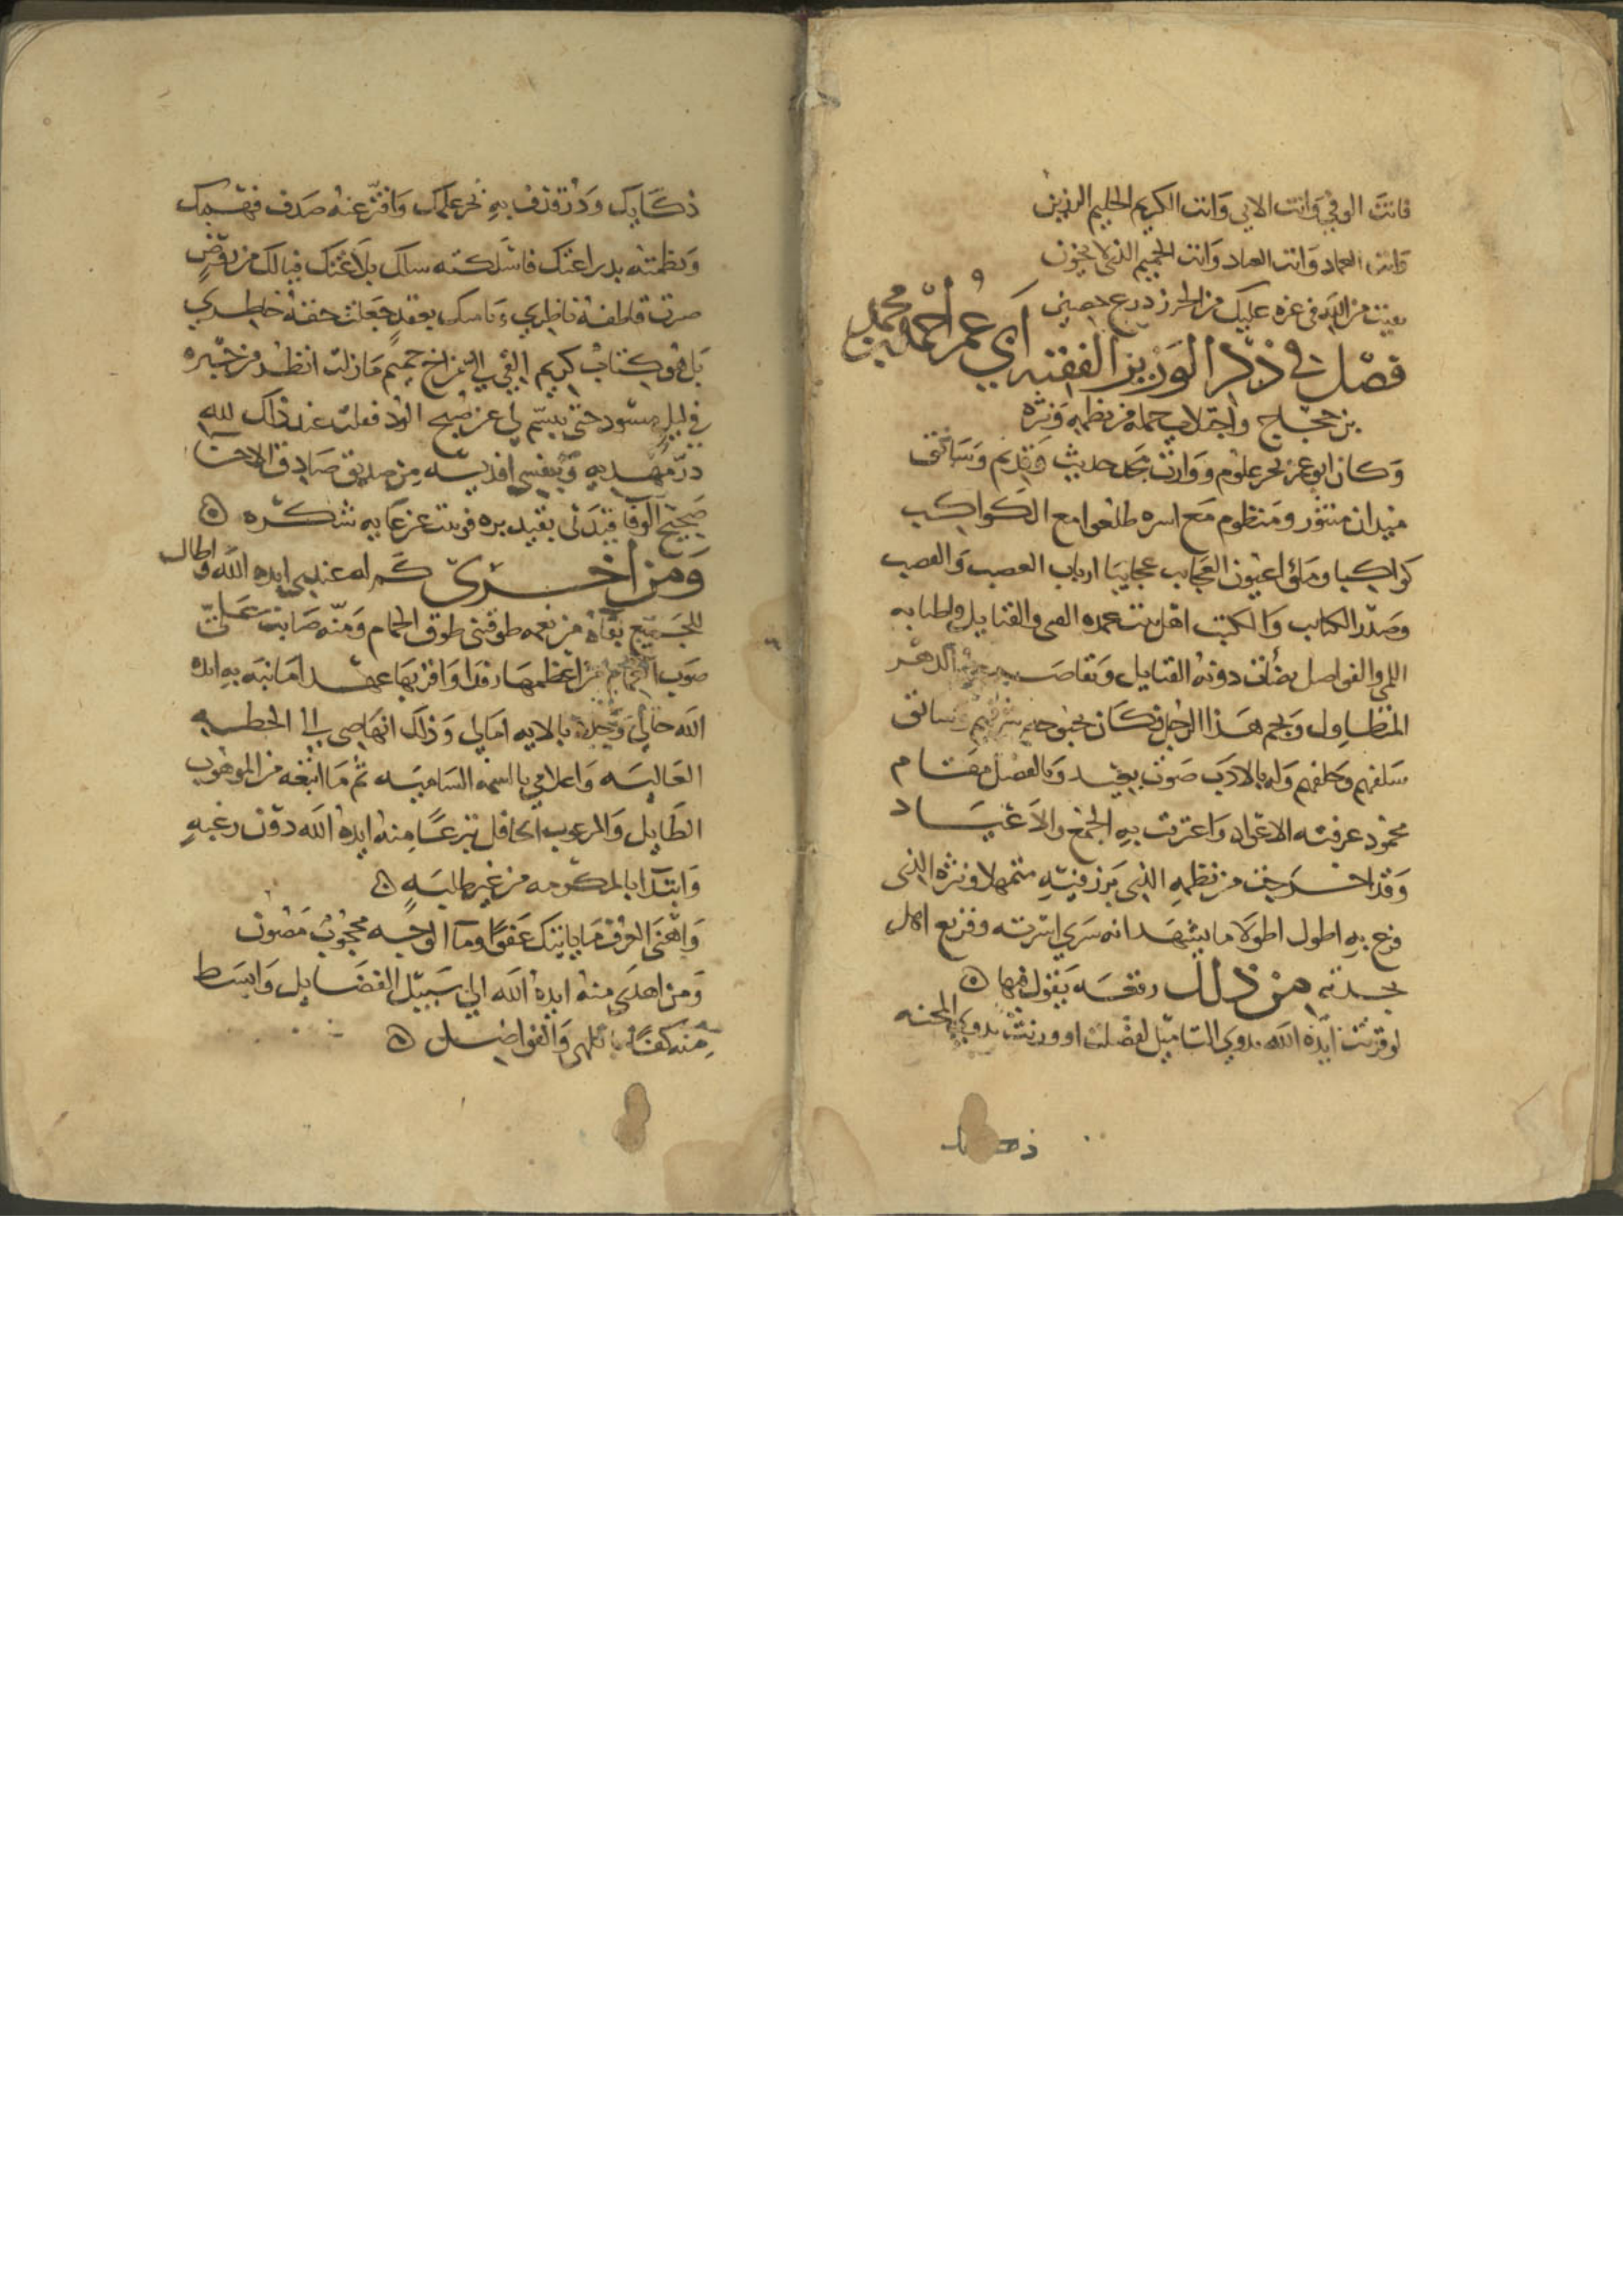 فانت الوفي وانت الابي وانت الكريم الحليم الرزين
وانت العماد وانت العتاد وانت الحميم الذي لا يخون
بقيت من الله في عزه عليك من الحرز درع حصين
فصل في ذكر الوزير الفقيه ابي عمر احمد بن محمد
بن حجاج واجتلاب جملة من نظمه ونثره
وكان ابو عمر بحر علوم ووارث مجد حديث وقديم وسائق
ميدان منثور ومنظوم مع اسره طلعوا مع الكواكب
كواكبا وملؤا عيون العجايب عجايبا ارباب العصب والقصب
وصدر الكتايب والكتب اهل بيت عمده القنا والقنابل واطنابه
اللهى والفواضل تضاءل دونه القبايل وتقاصر الدهر
المتطاول ونجم هذا الرجل فكان
سلفهم وخلفهم وله بالادب صوت بعيد وبالفضل مقام
محمود عرفته الاعياد واعترفت به الجمع والاعياد
وقد اخرجت من نظمه الذي برز فيه متمهلا ونثره الذي
فرع به اطول اطولا ما يشهد انه سري اسرته وقريع اهل
بلدته من ذلك رقعه يقول فيها
لو قرنت ايده الله بذوي التاميل لفضلت او وزنت بذوي المحنه
ذكايك ودر قذف به بحر علمك وافتر عنه صدف فهمك
ونظمته يد براعتك فاسلكته سلك بلاغتك فيالك من روض
صرت قاطفه ناظري وياسلك بعقد جعلت حقه خاطري
بل هو كتاب كريم القي الي من اخ حميم مازلت انتظر من خبره
في ليل مسود حتى تبسم لي عن صبح الود فقلت عند ذاك لله
در مهديه وبنفسي افديه من صديق صادق الاخا
صحيح الوفا قيدني بقيد بره فونيت عن عايه شكره
ومن اخرى كم له عندي ايده الله واطال
للجميع بقاه من نعمه طوقتني طوق الحمام ومنه صابت علي
صوب الغمام من اعظمها رفدا واقربها عهدا ما نبه به ايده
الله حالي وجلا بالايه امالي وذلك انهاضي الى الخطه
العاليه واعلامي بالسمه الساميه ثم ما اتبعه من الموهوب
الطايل والمرغوب الحافل تبرعا منه ايده الله دون رغبه
وابتدا بالمكرمه من غير طلبه
واهنى العرف ما ياتيك عفوا وما الوجه محجوب مصون
ومن اهدى منه ايده الله الى سبيل الفضايل وابسط
منه كفا باللهى والفواضل